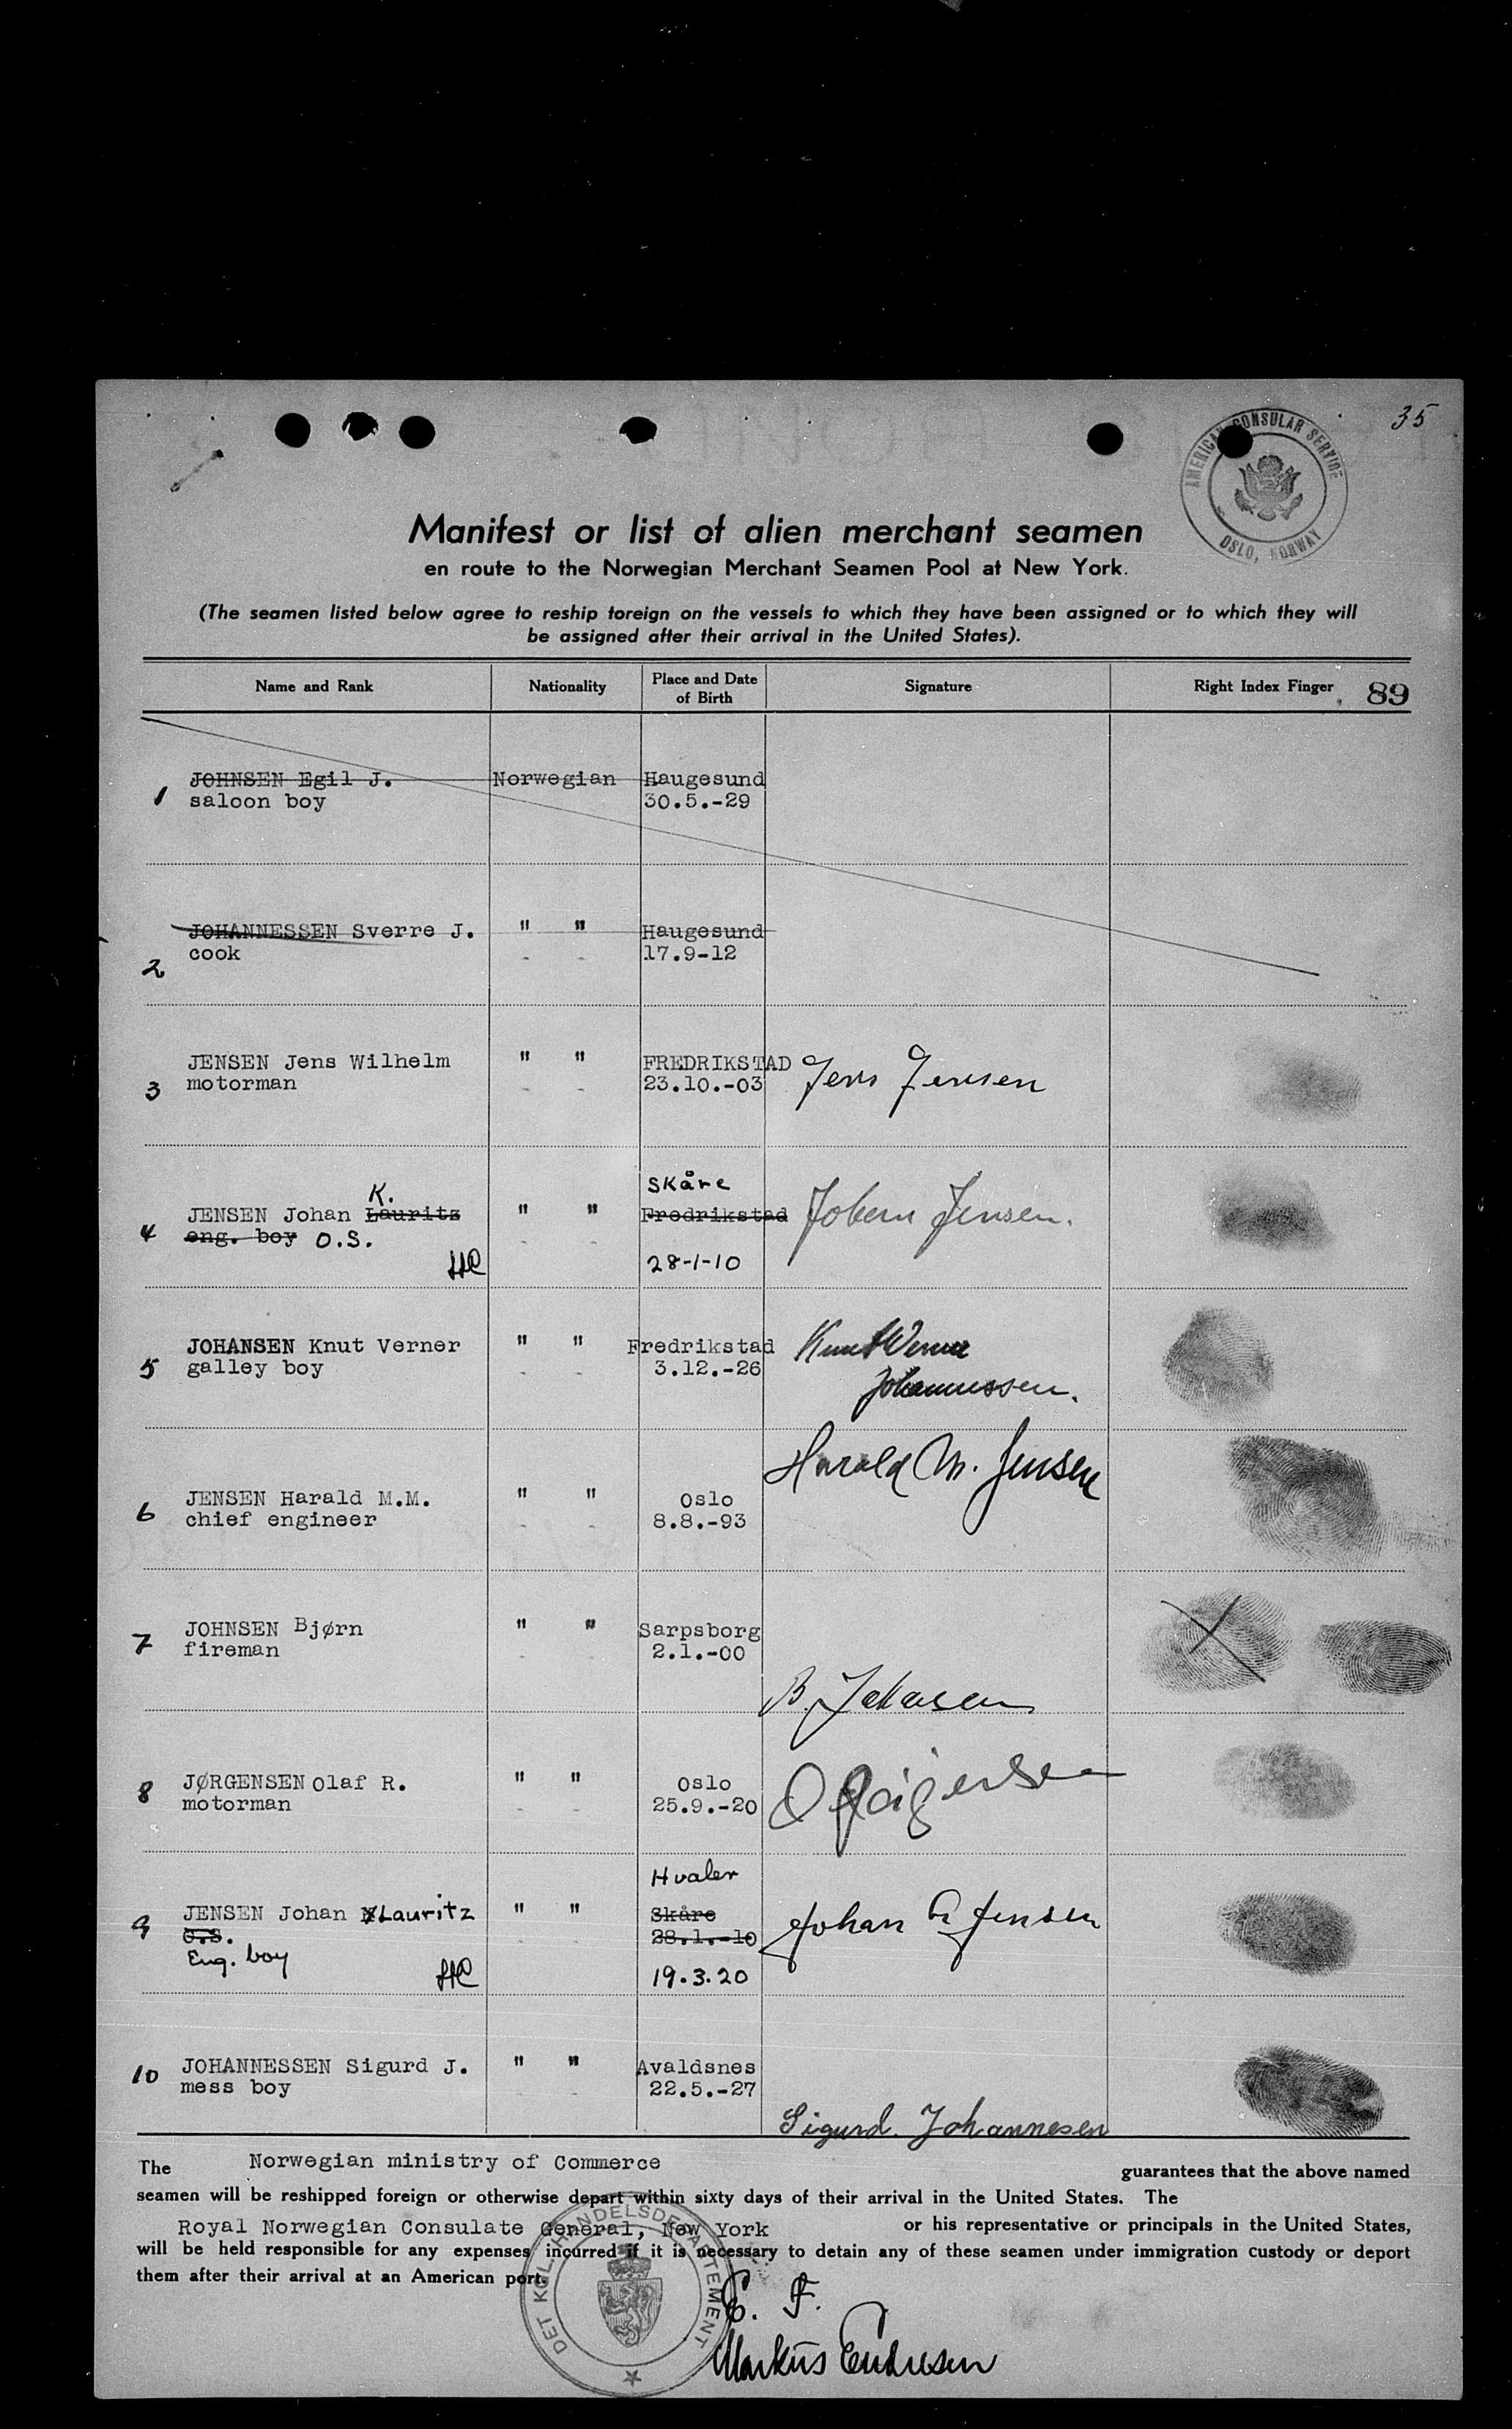 35
AMERICAN CONSULAR SERVICE
OSLO, NORWAY
Manifest or list of alien merchant seamen
en route to the Norwegian Merchant Seamen Pool at New York.
(The seamen listed below agree to reship foreign on the vessels to which they have been assigned or to which they will
be assigned after their arrival in the United States).
Name and Rank Nationality Place and Date of Birth Signature Right Index Finger 89
1 JOHNSEN Egil J. Norwegian Haugesund
saloon boy 30.5.-29
2 JOHANNESSEN Sverre J. " " Haugesund
cook 17.9-12
3 JENSEN Jens Wilhelm " " FREDRIKSTAD Jens Jensen
motorman 23.10.-03
K. Skåre
4 JENSEN Johan Lauritz " " Fredrikstad Johan Jensen.
eng. boy O.S.
HC 28-1-10
5 JOHANSEN Knut Verner " " Fredrikstad Knut Werner
galley boy 3.12.-26 Johannessen.
Harald M. Jensen
6 JENSEN Harald M.M. " " Oslo
chief engineer 8.8.-93
7 JOHNSEN Bjørn " " Sarpsborg
fireman 2.1.-00
B. Johnsen
8 JØRGENSEN Olaf R. " " Oslo
motorman 25.9.-20
Hvaler
9 JENSEN Johan Lauritz " " Skåre Johan Jensen
O.S. 28.1.-10
Eng. boy
HC 19.3.20
10 JOHANNESSEN Sigurd J. " " Avaldsnes
mess boy 22.5.-27
Sigurd. Johannesen
The Norwegian ministry of Commerce guarantees that the above named
seamen will be reshipped foreign or otherwise depart within sixty days of their arrival in the United States. The
Royal Norwegian Consulate General, New York or his representative or principals in the United States,
will be held responsible for any expenses incurred if it is necessary to detain any of these seamen under immigration custody or deport
them after their arrival at an American port.
DET KGL. HANDELSDEPARTEMENT
E. F.
Markus Endresen